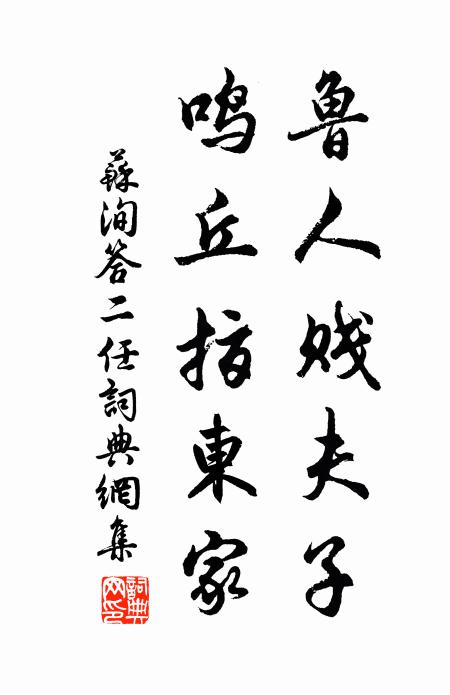 魯人賤夫子
鳴丘指東家
蘇洵答二任詞典網集
詞典
网印